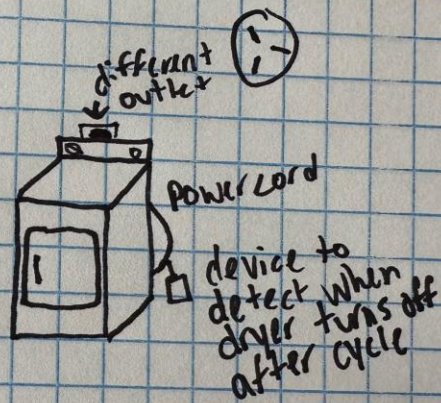 different
outlet
powercord
device to
detect when
dryer turns off
after cycle